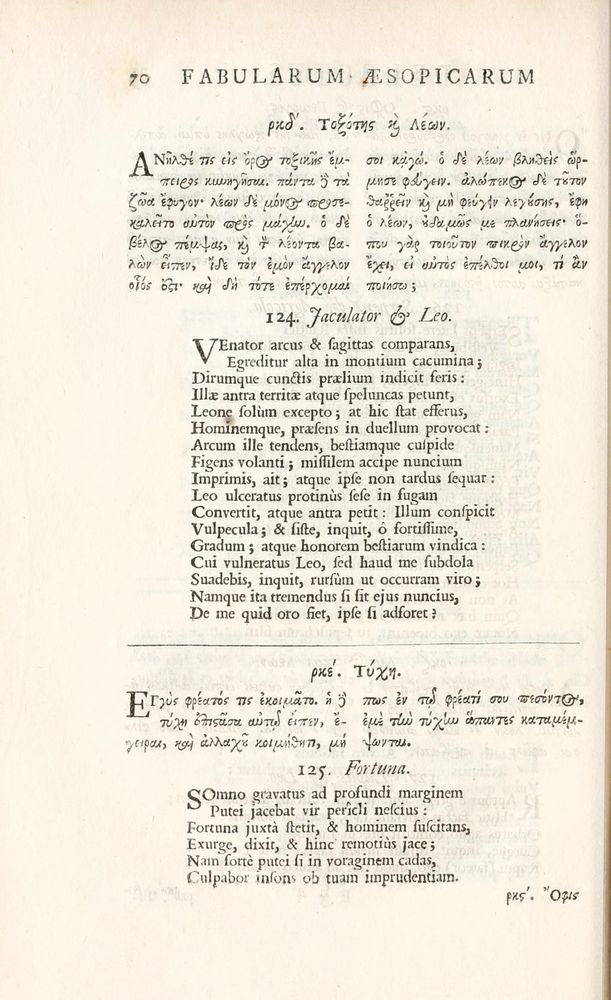 70 FABULARUM ÆSOPICARUM
ρκδ'. Τοξότης ϗ Λέων.
ΑΝῆλθέ τις εἰς ὄρος τοξικῆς ἔμ-
πειρος κυνηγῆσαι. πάντα δὲ τὰ
ζῶα ἔφυγον· λέων δὲ μόνος προσε-
καλεῖτο αὐτὸν πρὸς μάχην. ὁ δὲ
βέλος πέμψας, ϗ τ λέοντα βα-
λὼν εἶπεν, ἴδε τὸν ἐμὸν ἄγγελον
οἷός ὅξι· καὶ δὴ τότε ἐπέρχομαί
σοι κἀγώ. ὁ δὲ λέων βληθεὶς ὥρ-
μησε φεύγειν. ἀλώπεκος δὲ τοῦτον
θαῤῥεῖν ϗ μὴ φεύγειν λεγούσης, ἔφη
ὁ λέων, οὐδαμῶς με πλανήσεις· ὅ-
που γὰρ τοιοῦτον πικρὸν ἄγγελον
ἔχει, εἰ αὐτὸς ἐπέλθοι μοι, τί ἂν
ποιήσω;
124. Jaculator & Leo.
VEnator arcus & ſagittas comparans,
Egreditur alta in montium cacumina;
Dirumque cunctis prælium indicit feris:
Illæ antra territæ atque ſpeluncas petunt,
Leone ſolùm excepto; at hic ſtat efferus,
Hominemque, præſens in duellum provocat:
Arcum ille tendens, beſtiamque cuſpide
Figens volanti; miſſilem accipe nuncium
Imprimis, ait; atque ipſe non tardus ſequar:
Leo ulceratus protinùs ſeſe in fugam
Convertit, atque antra petit: Illum conſpicit
Vulpecula; & ſiſte, inquit, ó fortiſſime,
Gradum; atque honorem beſtiarum vindica:
Cui vulneratus Leo, ſed haud me ſubdola
Suadebis, inquit, rurſùm ut occurram viro;
Namque ita tremendus ſi ſit ejus nuncius,
De me quid oro fiet, ipſe ſi adforet?
ρκέ. Τύχη.
ΕΓγὺς φρέατός τις ἐκοιμᾶτο. ἡ δὲ
τύχη ἐπιστᾶσα αὐτῷ εἶπεν, ἔ-
γειραι, καὶ ἀλλαχοῦ κοιμήθητι, μή
πως ἐν τῷ φρέατί σου πεσόντος,
ἐμὲ τὴν τύχην ἅπαντες καταμέμ-
ψωνται.
125. Fortuna.
SOmno gravatus ad profundi marginem
Putei jacebat vir perîcli neſcius:
Fortuna juxtà ſtetit, & hominem ſuſcitans,
Exurge, dixit, & hinc remotiùs jace;
Nam fortè putei ſi in voraginem cadas,
Culpabor inſons ob tuam imprudentiam.
ρκς'. Ὄφις